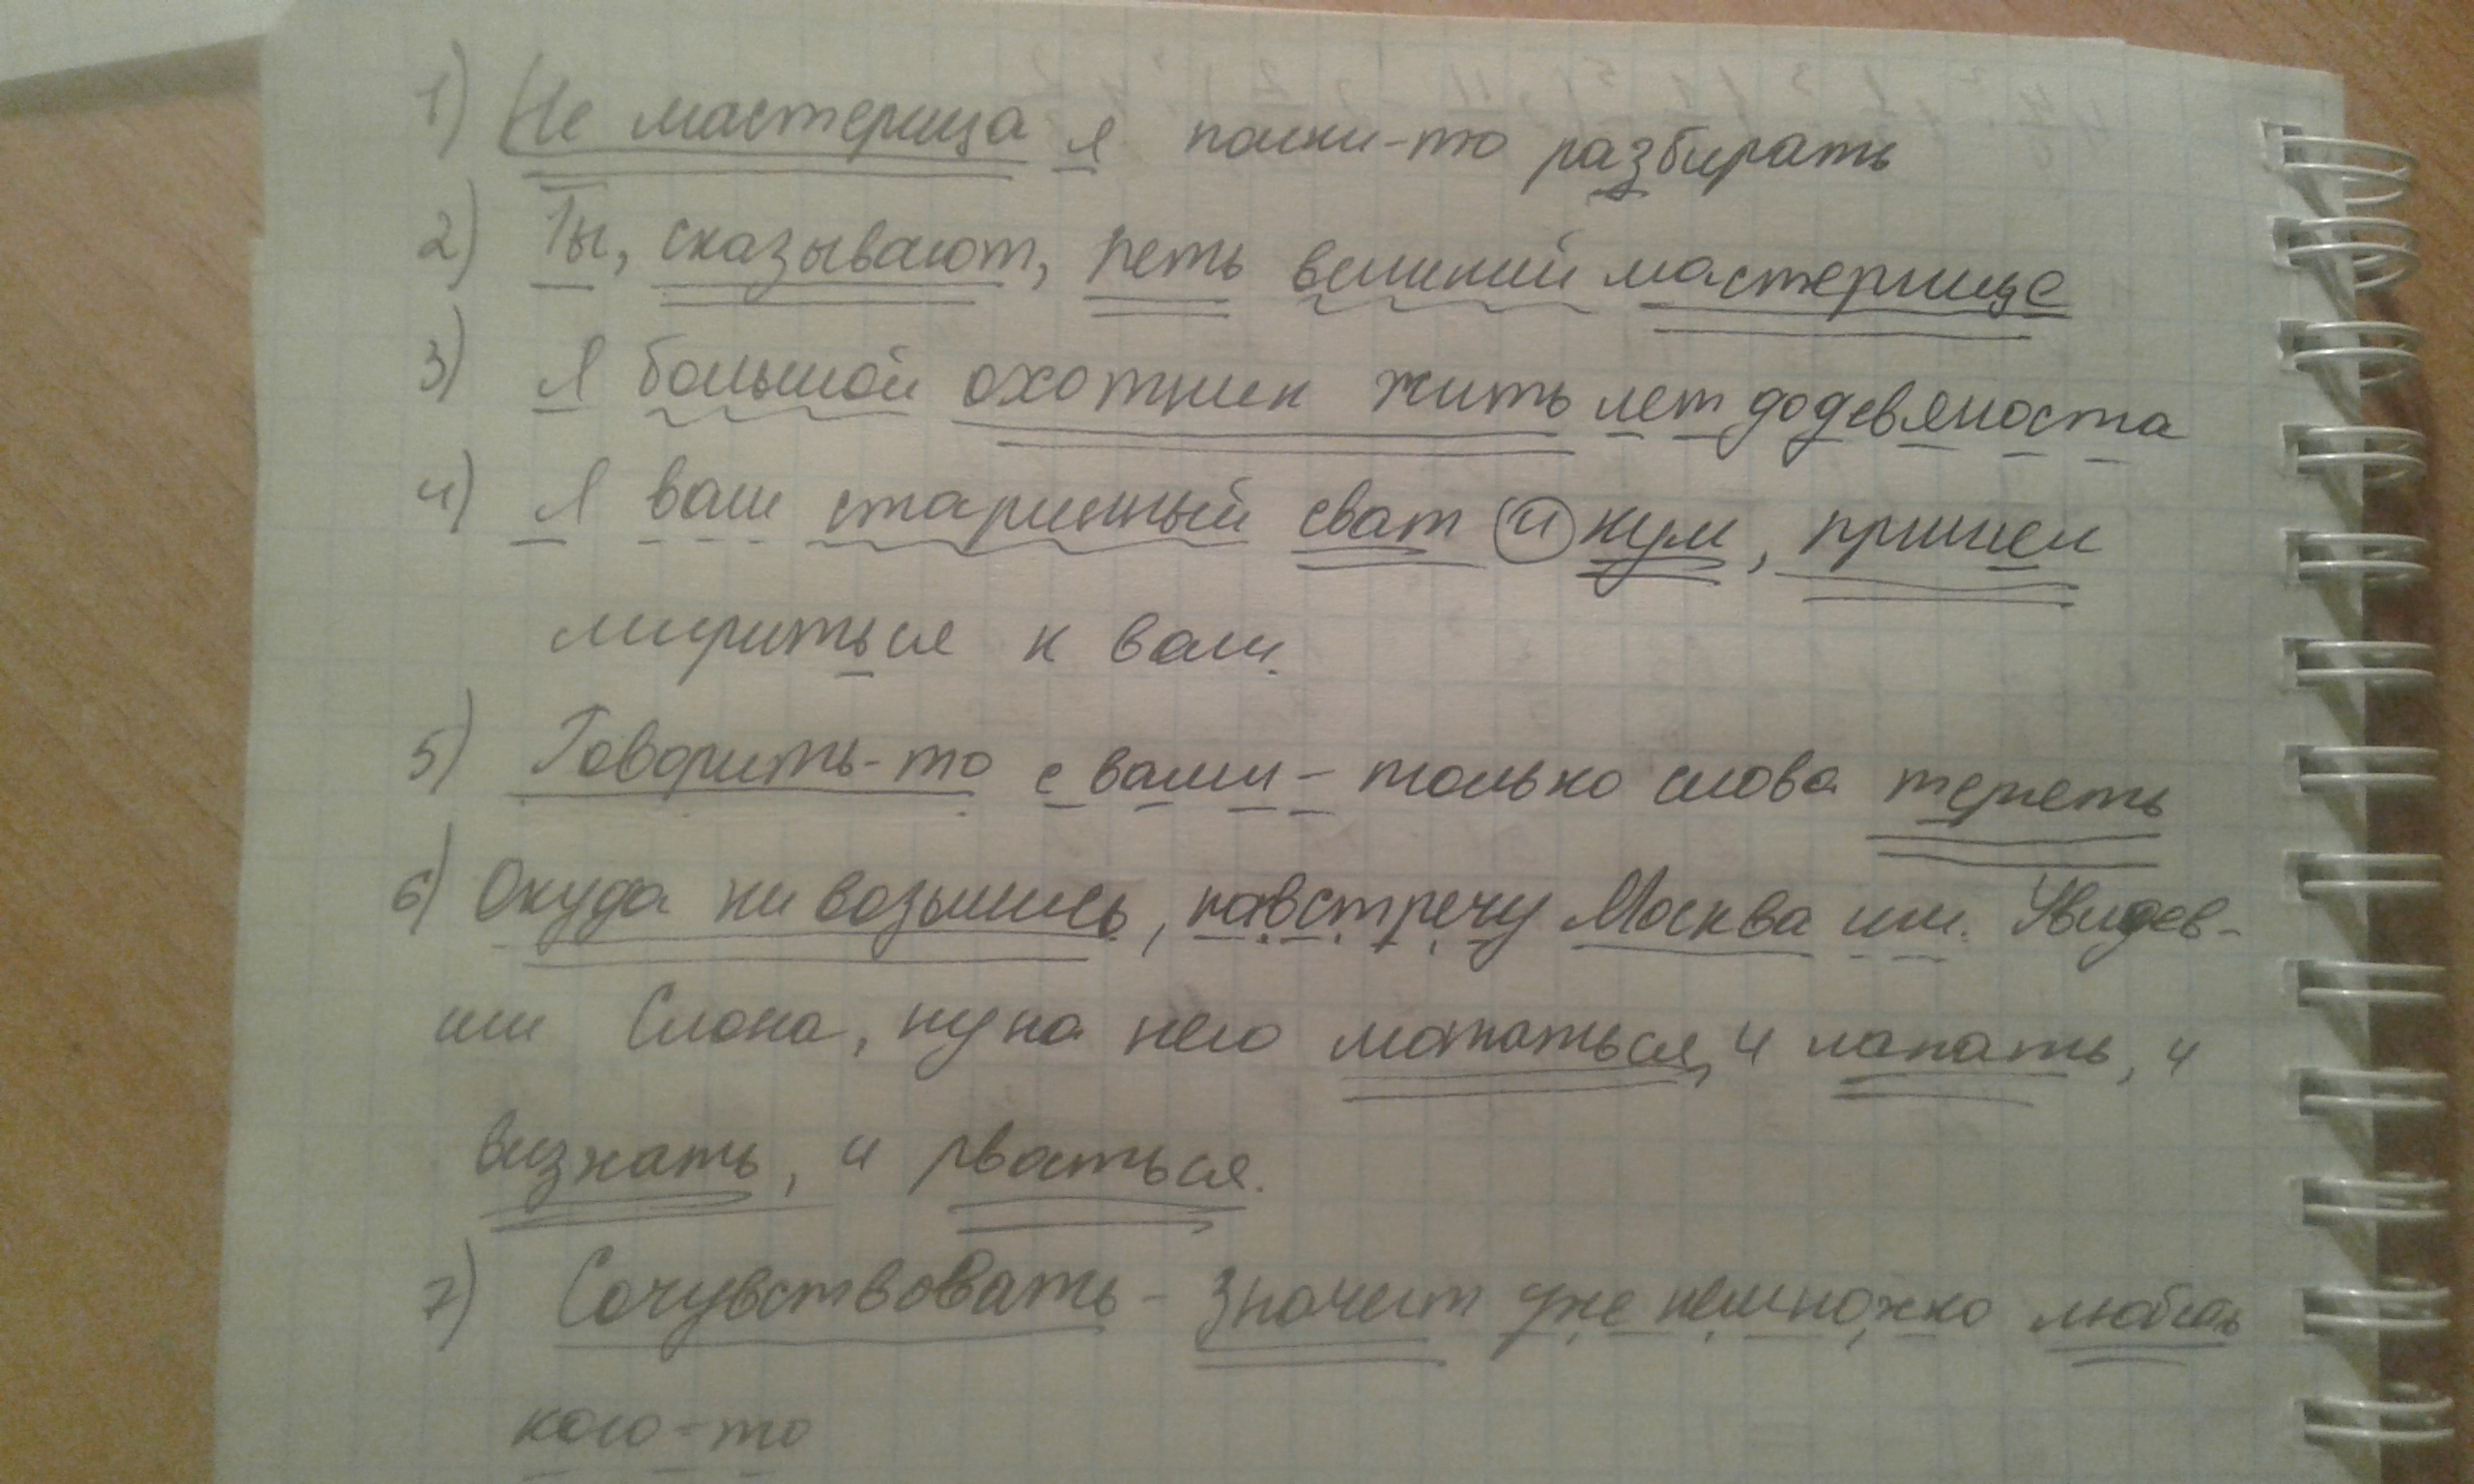 1) Не мастерица я полки-то разбирать
2) Ты, сказывают, петь великий мастерище
3) Я большой охотник жить лет до девяноста
4) Я ваш старинный сват и кум, пришел
мириться к вам.
5) Говорить-то с вами - только слова терять
6) Окуда ни возьмись, навстречу Моська им. Увидев-
ши Слона, ну на него метаться, и лапать, и
визжать, и рваться.
7) Сочувствовать - значит уже немножко любить
кого-то